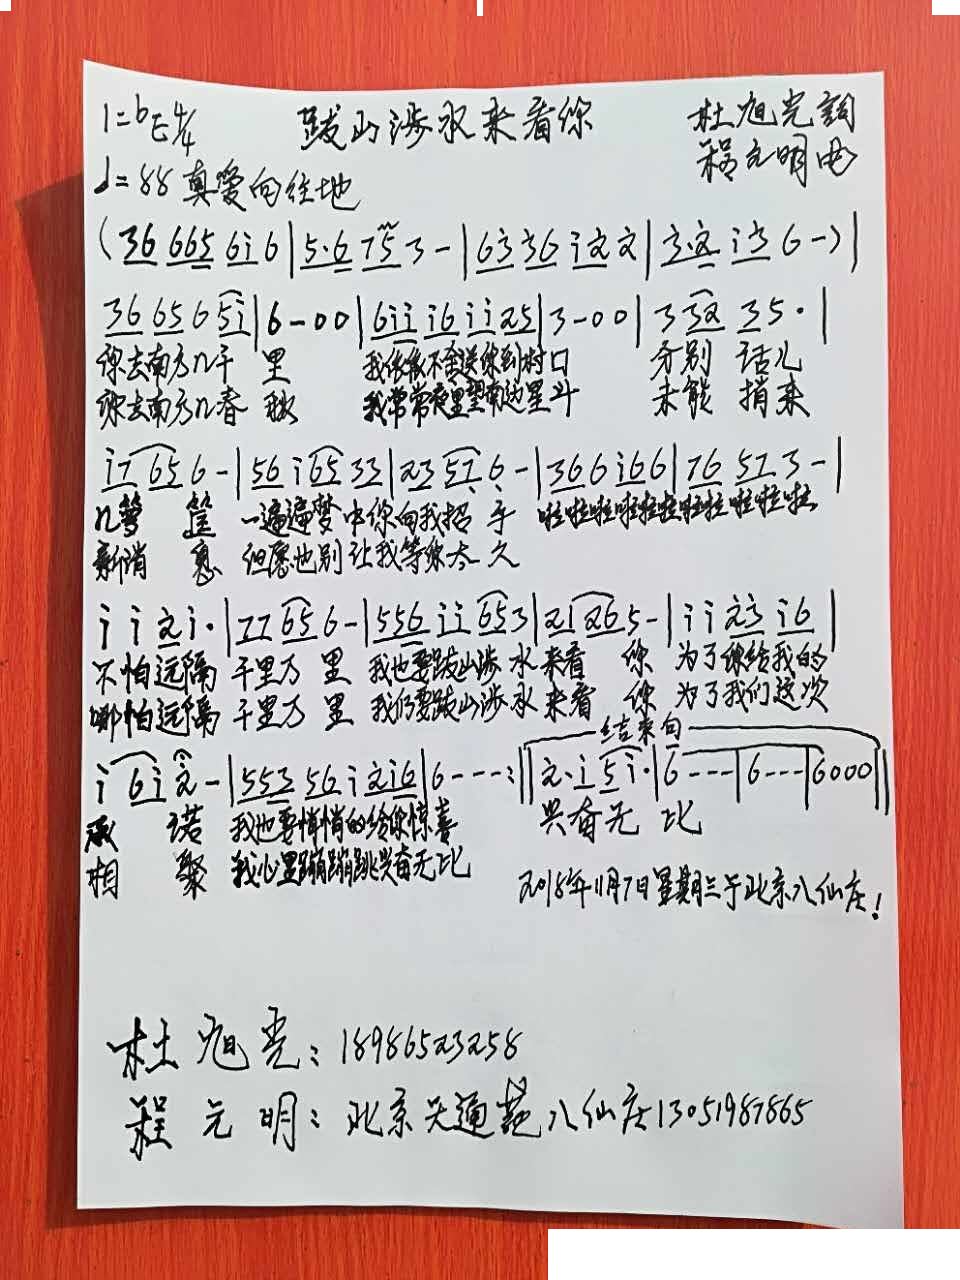 1=bE 4/4 跋山涉水来看你 杜旭光词
程元明曲
♩=88 真爱向往地
(36 665 6i6|5·6 75 3-|63 36 i22|3·2 i3 6-)|
36 65 6 5i|6-00|6ii i6 ii25|3-00|3 32 35·|
你去南方几千里 我依依不舍送你到村口 分别话儿
你去南方几春秋 我常常夜里望南边星斗 未能捎来
i7 65 6-|56 i65 33|23 57 6-|366 i66|76 57 3-|
几箩筐 一遍遍梦中你向我招手 啦啦啦啦啦啦啦啦啦啦啦
新消息 但愿也别让我等你太久
i i 2 i·|77 65 6-|556 ii 653|21 26 5-|i i 23 i6|
不怕远隔千里万里 我也要跋山涉水来看你 为了你给我的
哪怕远隔千里万里 我们要跋山涉水来看你 为了我们这次
结束句
i 6i 2-|553 56 i 2i6|6---:‖2·i 5 i·|6---|6---|6000‖
承诺 我也要悄悄的给你惊喜 兴奋无比
相聚 我心里蹦蹦跳兴奋无比
2018年11月7日星期三于北京八仙庄!
杜旭光:18986523258
程元明:北京天通苑八仙庄13051987865